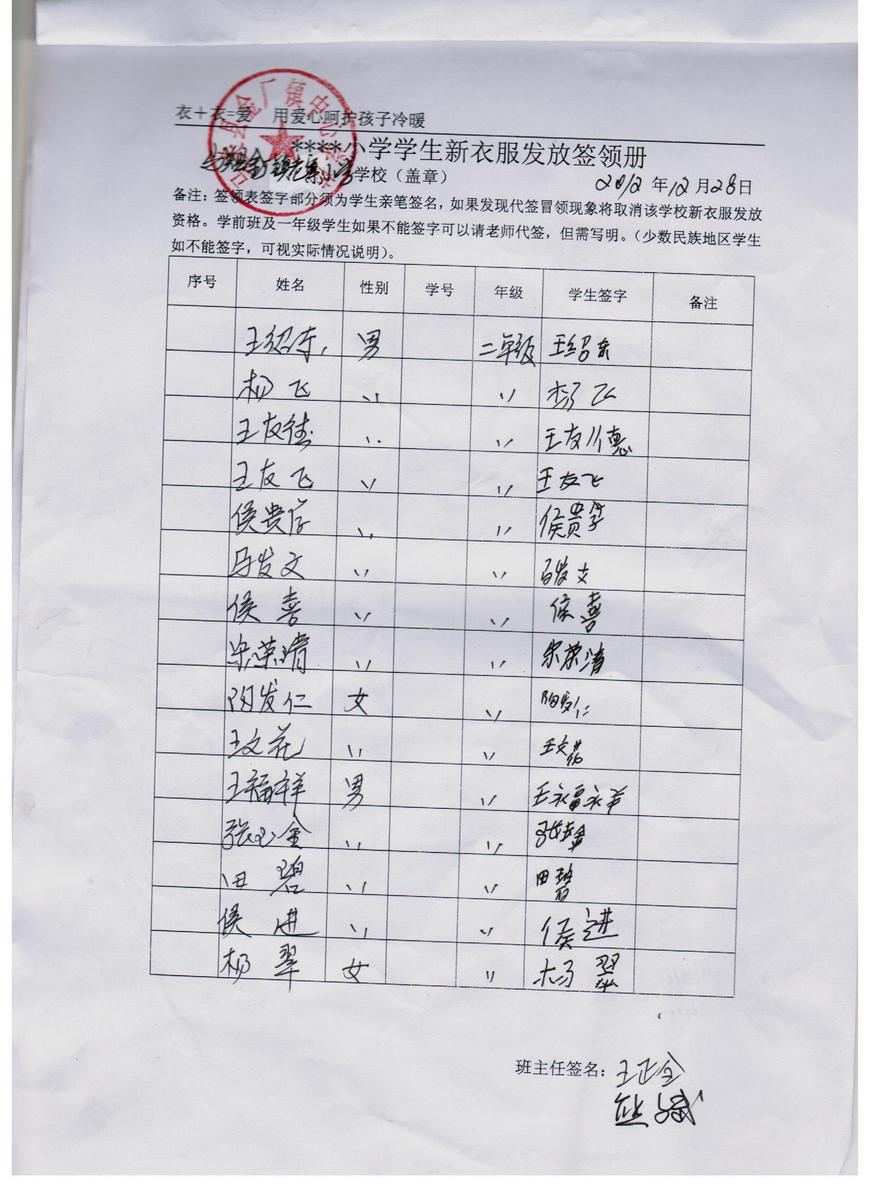 衣+衣=爱 用爱心呵护孩子冷暖
****小学学生新衣服发放签领册
学校（盖章） 2012 年 12 月 28 日
备注：签领表签字部分须为学生亲笔签名，如果发现代签冒领现象将取消该学校新衣服发放
资格。学前班及一年级学生如果不能签字可以请老师代签，但需写明。（少数民族地区学生
如不能签字，可视实际情况说明）。
序号 姓名 性别 学号 年级 学生签字 备注
王绍东 男 二年级 王绍东
杨飞 〃 〃 杨飞
王友德 〃 〃 王友德
王友飞 〃 〃 王友飞
侯贵学 〃 〃 侯贵学
马发文 〃 〃 马发文
侯喜 〃 〃 侯喜
宋荣清 〃 〃 宋荣清
陶发仁 女 〃 陶发仁
王文花 〃 〃 王文花
王福祥 男 〃 王福祥
张玉金 〃 〃
田碧 〃 〃 田碧
侯进 〃 〃 侯进
杨翠 女 〃 杨翠
班主任签名：王正全